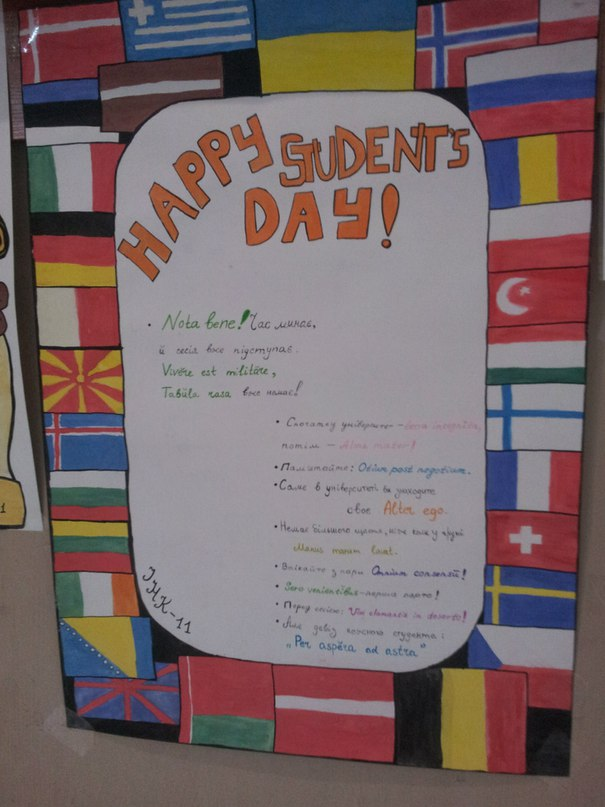 HAPPY STUDENT'S
DAY!
• Nota bene! Час минає,
й сесія вже підступає.
Vivĕre est militāre,
Tabŭla rasa вже немає!
• Спочатку університет – terra incognita,
потім – Alma mater!
• Пам'ятайте: Otium post negotium.
• Саме в університеті ви знаходите
своє Alter ego.
• Немає більшого щастя, ніж коли у друзів
Manus manum lavat.
• Втікайте з пари Omnium consensū!
• Sero venientibus – перша парта!
• Перед сесією: Vox clamantis in deserto!
• Але девіз кожного студента:
„Per aspĕra ad astra"
ІНК-11
1